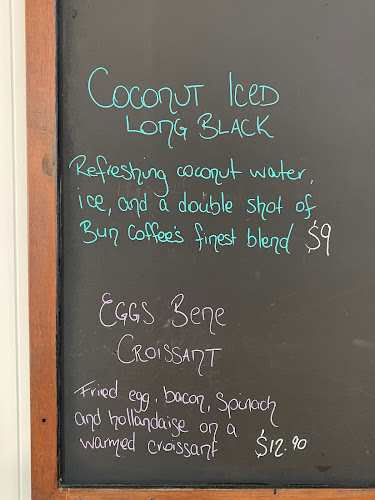 COCONUT ICED
LONG BLACK
Refreshing coconut water,
ice, and a double shot of
Bun Coffee's finest blend $9
EGGS BENE
CROISSANT
Fried egg, bacon, Spinach
and hollandaise on a
warmed croissant $12.90